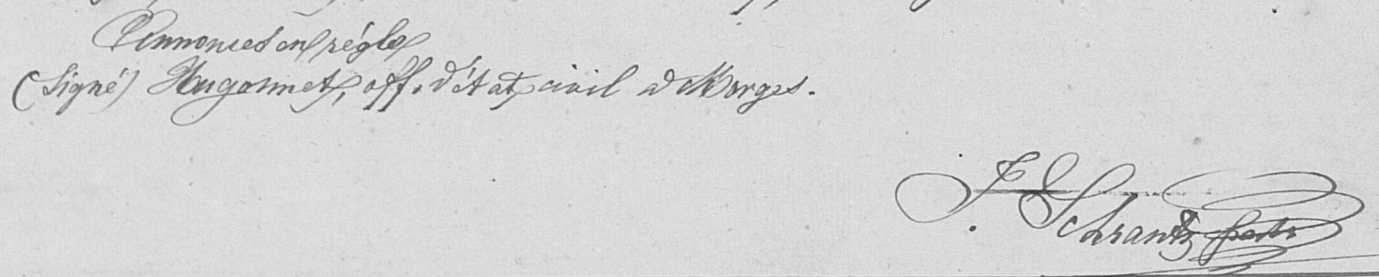 Annonces en règle
(Signé) Hugonnet, off. d'état civil à Morges.
F. Schrantz past.